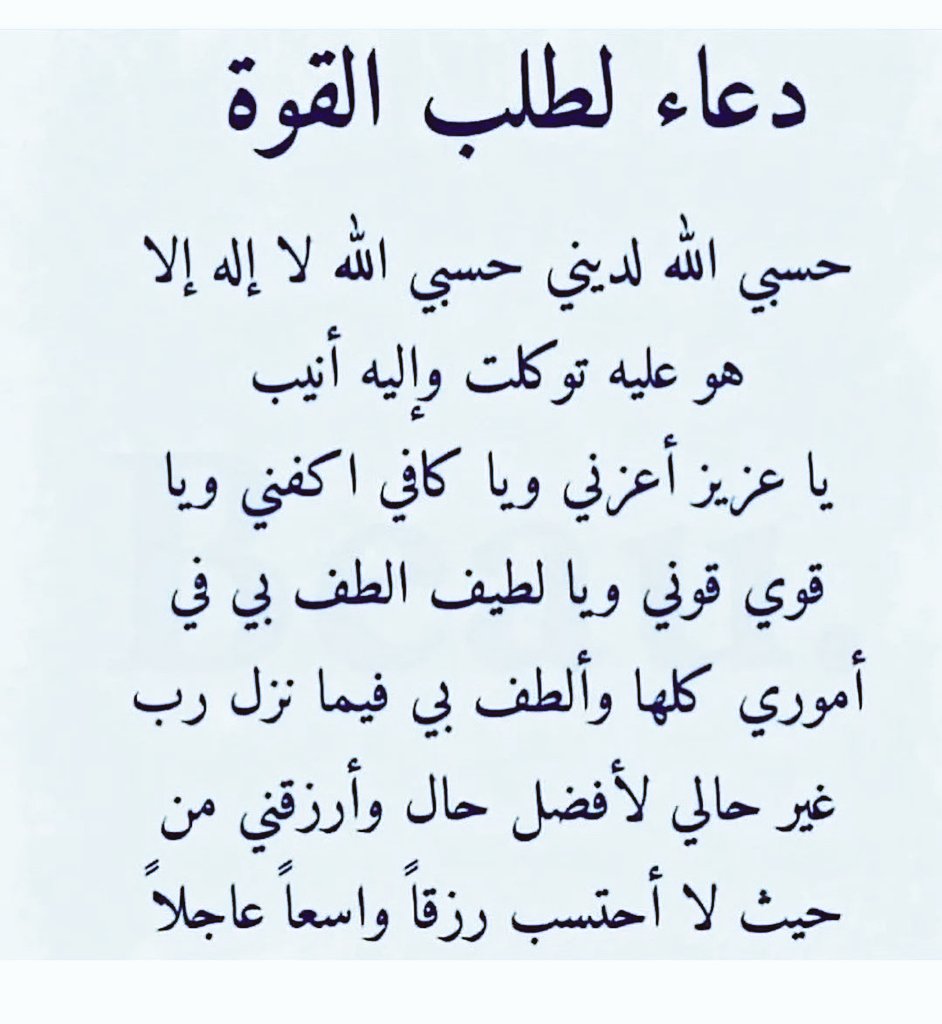 دعاء لطلب القوة
حسبي الله لديني حسبي الله لا إله إلا
هو عليه توكلت وإليه أنيب
يا عزيز أعزني ويا كافي اكفني ويا
قوي قوني ويا لطيف الطف بي في
أموري كلها وألطف بي فيما نزل رب
غير حالي لأفضل حال وأرزقني من
حيث لا أحتسب رزقاً واسعاً عاجلاً